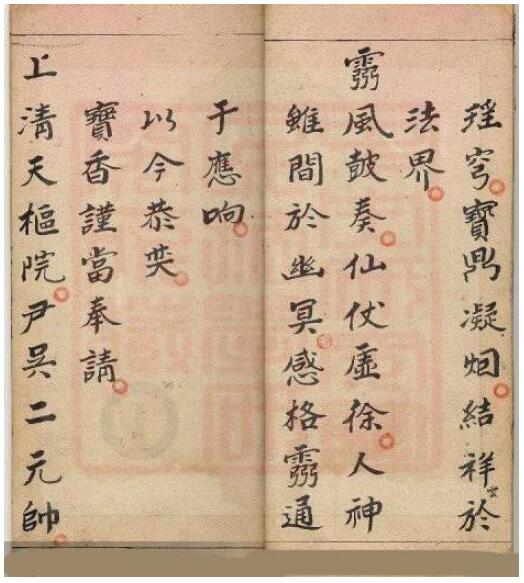 瑶穹寶鼎凝烟結祥於
法界
靈風皷奏仙仗虛徐人神
雖間於幽冥感格靈通
于應响
以今恭焚
寶香謹當奉請
上清天樞院尹吳二元帥